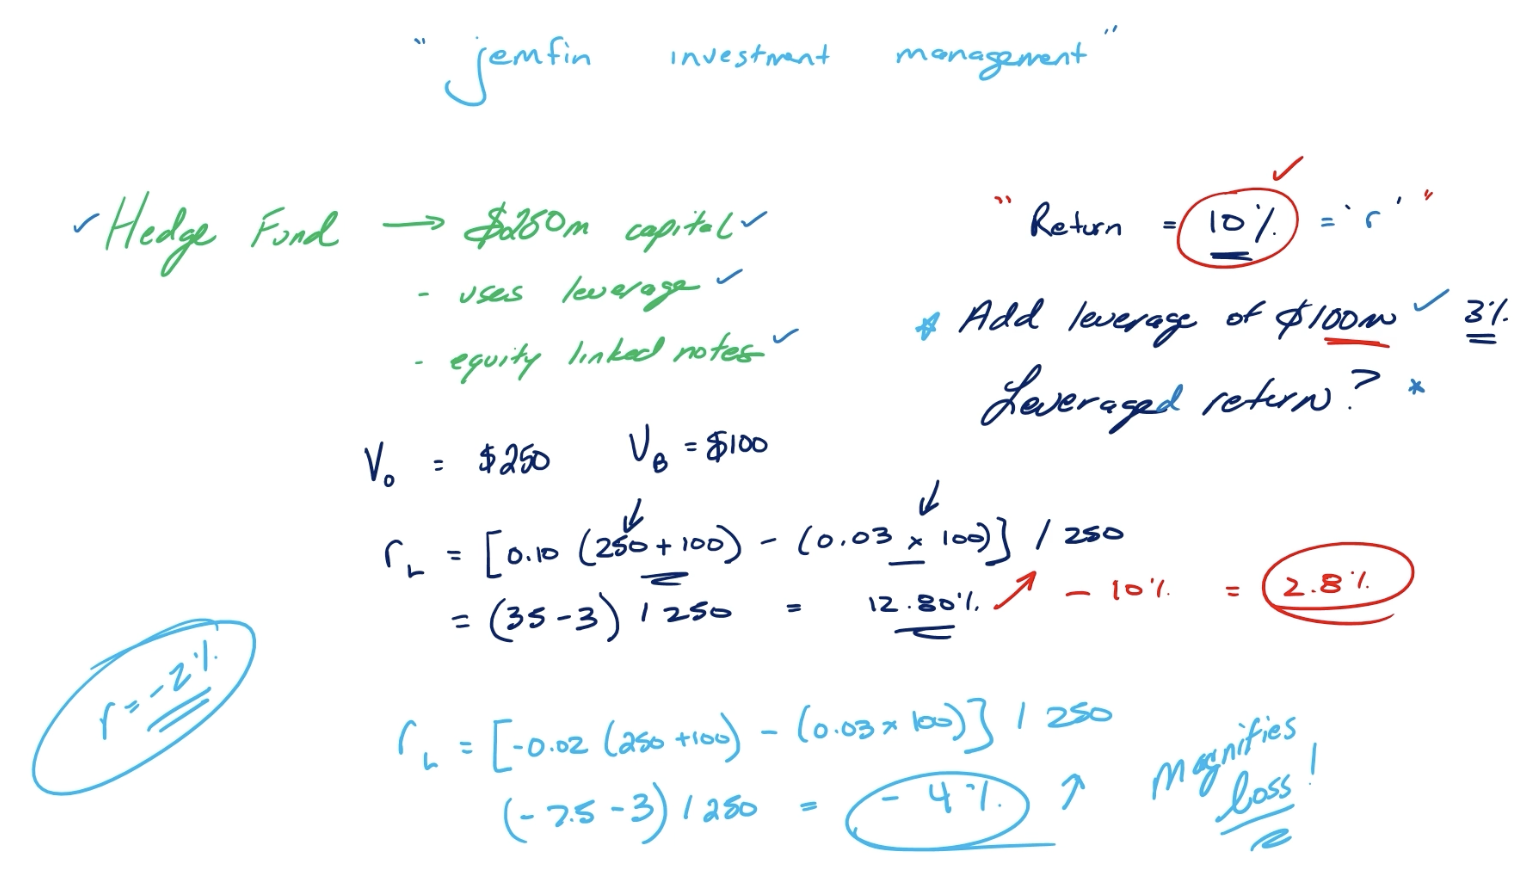 " jemfin investment management "
✓ Hedge Fund → $250m capital ✓
- uses leverage ✓
- equity linked notes ✓
" Return = 10% = 'r' "
* Add leverage of $100m ✓ 3%
Leveraged return? *
V₀ = $250 V_B = $100
r_L = [0.10 (250 + 100) - (0.03 × 100)] / 250
= (35 - 3) / 250 = 12.80% - 10% = 2.8%
r = -2%
r_L = [-0.02 (250 + 100) - (0.03 × 100)] / 250
(- 7.5 - 3) / 250 = - 4% ↑
magnifies
loss!